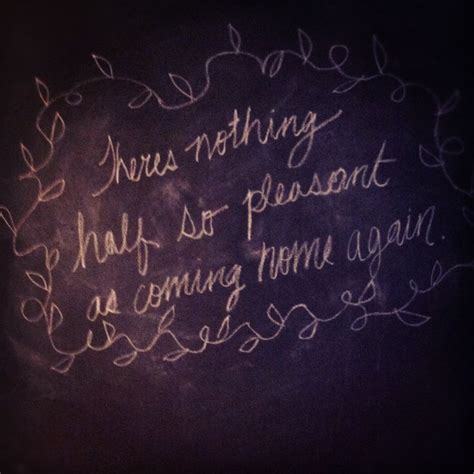 Theres nothing
half so pleasant
as coming home again.